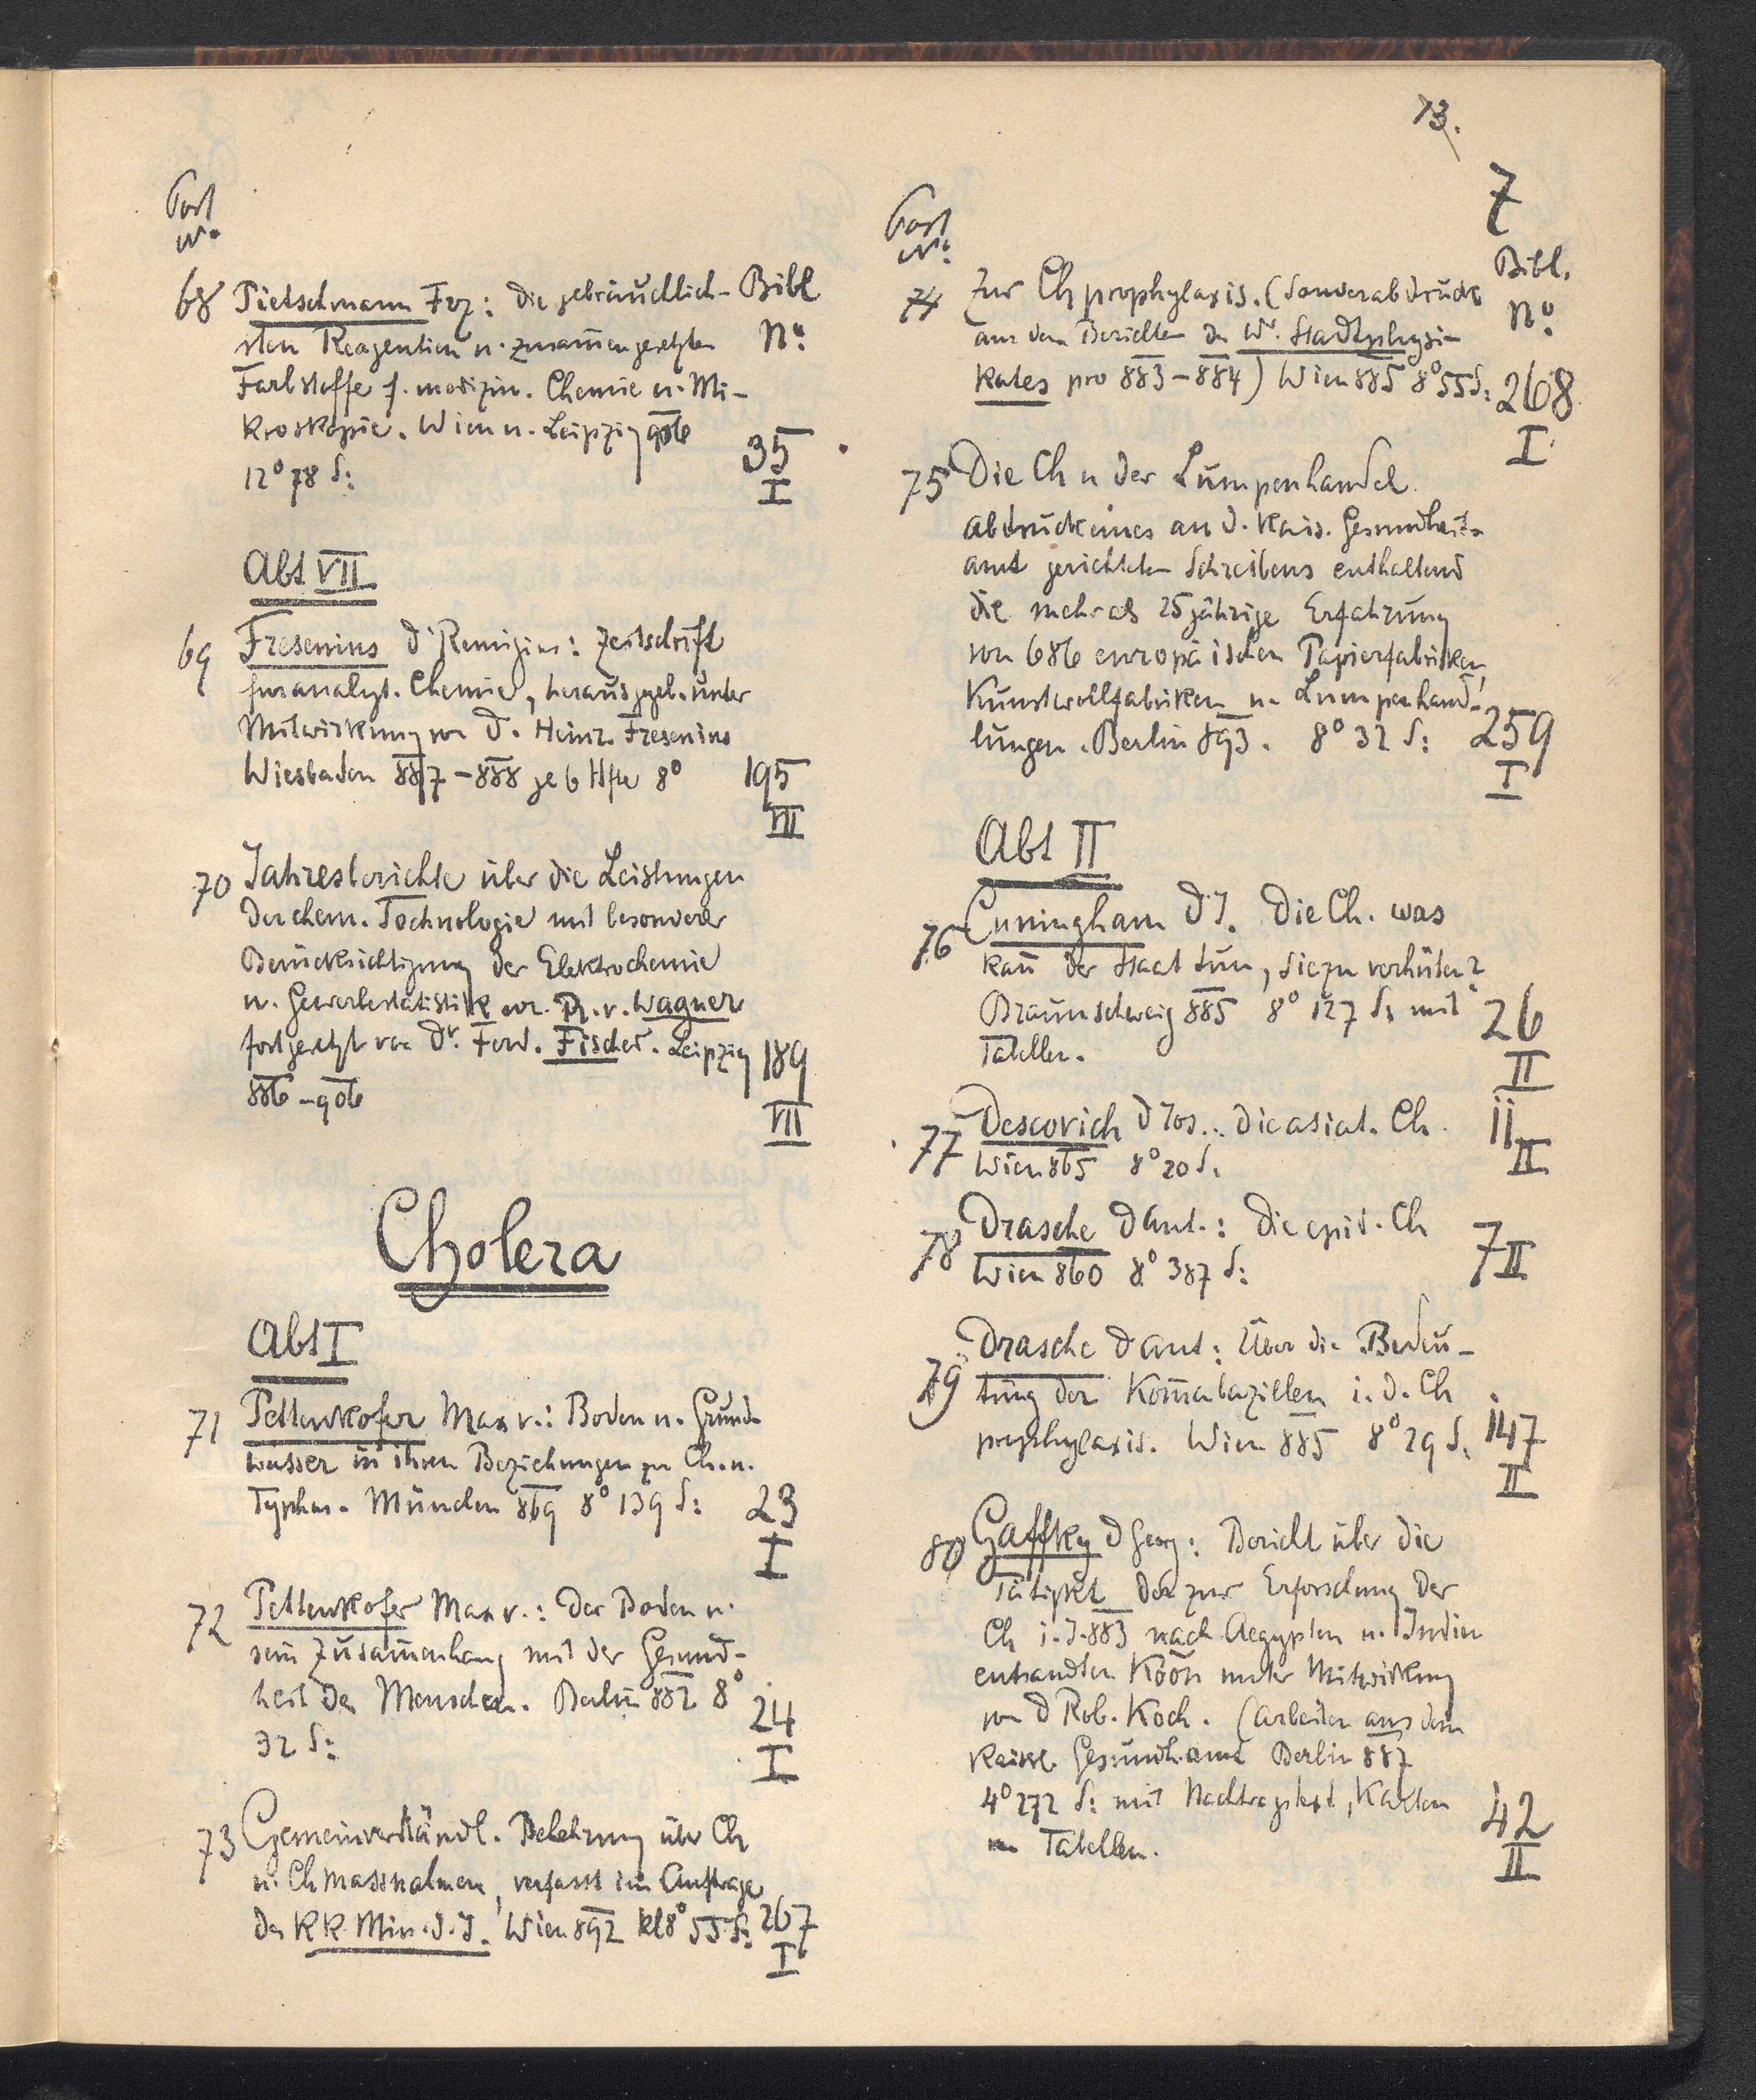 13.
7
Post
No
68 Pietschmann Frz: Die gebräuchlich- Bibl
sten Reagentien u. zusam̄engesetzten No:
Farbstoffe f. medizin. Chemie u. Mi-
kroskopie. Wien u. Leipzig 906
12° 78 S: 35
I
Abt VII
69 Fresenius Dr Remigius: Zeitschrift
für analyt. Chemie, herausgegeb. unter
Mitwirkung von Dr. Heinr. Fresenius
Wiesbaden 887-888 je 6 Hfte 8° 195
VII
70 Jahresberichte über die Leistungen
der chem. Technologie mit besonderer
Berücksichtigung der Elektrochemie
u. Gewerbestatistik v. R. v. Wagner
fortgesetzt von Dr. Ferd. Fischer. Leipzig 189
886-906 VII
Cholera
Abt I
71 Pettenkofer Max v.: Boden u. Grund-
wasser in ihren Beziehungen zu Ch. u.
Typhus. München 869 8° 139 S: 23
I
72 Pettenkofer Max v.: Der Boden u.
sein Zusam̄enhang mit der Gesund-
heit des Menschen. Berlin 882 8° 24
32 S: I
73 Gemeinverständl. Belehrung über Ch
u. Ch Massnahmen, verfasst im Auftrage
des KK Min. d. I. Wien 892 kl 8° 55 S: 267
I
Post
No:
Bibl.
74 Zur Ch prophylaxis. (Sonderabdruck No:
aus den Berichten des Wr. Stadtphysi-
kates pro 883-884) Wien 885 8° 55 S: 268
I
75 Die Ch u der Lumpenhandel.
Abdruck eines an d. Kais. Gesundheits-
amt gerichteten Schreibens enthaltend
die mehr als 25 jährige Erfahrung
von 686 europäischen Papierfabriken,
Kunstwollfabriken u. Lumpenhand-
lungen. Berlin 893. 8° 32 S: 259
I
Abt II
76 Cuningham D J. Die Ch. was
kan̄ der Staat tun, sie zu verhüten?
Braunschweig 885 8° 127 S: mit 26
Tabellen. II
77 Descovich D Jos.. Die asiat. Ch. 11
Wien 865 8° 20 S. II
78 Drasche D Ant.: Die epid. Ch 7
Wien 860 8° 387 S: II
79 Drasche D Ant: Über die Bedeu-
tung der Kom̄abazillen i. d. Ch
prophylaxis. Wien 885 8° 29 S. 147
II
80 Gaffky D Georg: Bericht über die
Tätigkt der zur Erforschung der
Ch i. J. 883 nach Aegypten u. Indien
entsandten Kōōn unter Mitwirkung
von D Rob. Koch. (Arbeiten aus dem
Kaiserl. Gesundh. amt Berlin 887
4° 272 S: mit Nachtragstext, Karten 42
u Tabellen. II